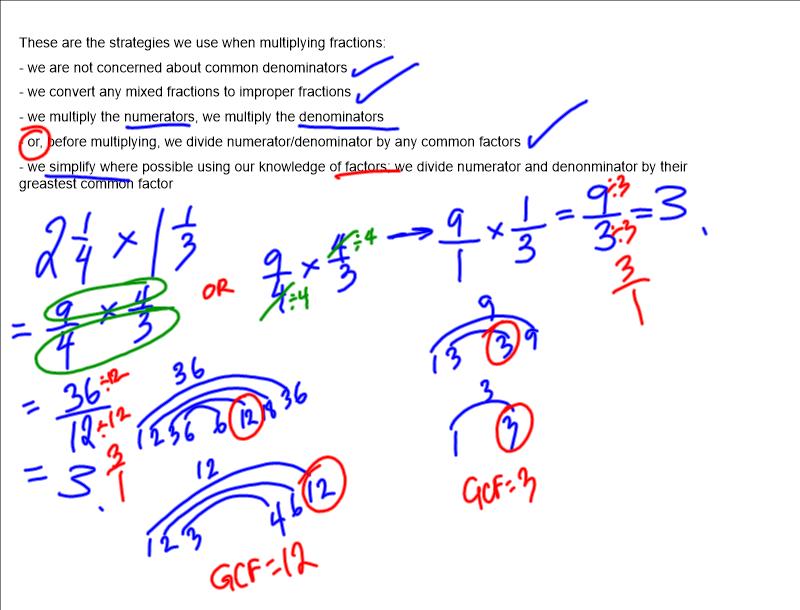 These are the strategies we use when multiplying fractions:
- we are not concerned about common denominators
- we convert any mixed fractions to improper fractions
- we multiply the numerators, we multiply the denominators
- or, before multiplying, we divide numerator/denominator by any common factors
- we simplify where possible using our knowledge of factors: we divide numerator and denonminator by their
greastest common factor
2 1/4 × 1 1/3
= 9/4 × 4/3
= 36÷12/12÷12
= 3. 3/1
OR
9/4÷4 × 4÷4/3 → 9/1 × 1/3 = 9÷3/3÷3 = 3.
3/1
36
1 2 3 6 6 12 18 36
12
1 2 3 4 6 12
GCF=12
9
1 3 3 9
3
1 3
GCF=3